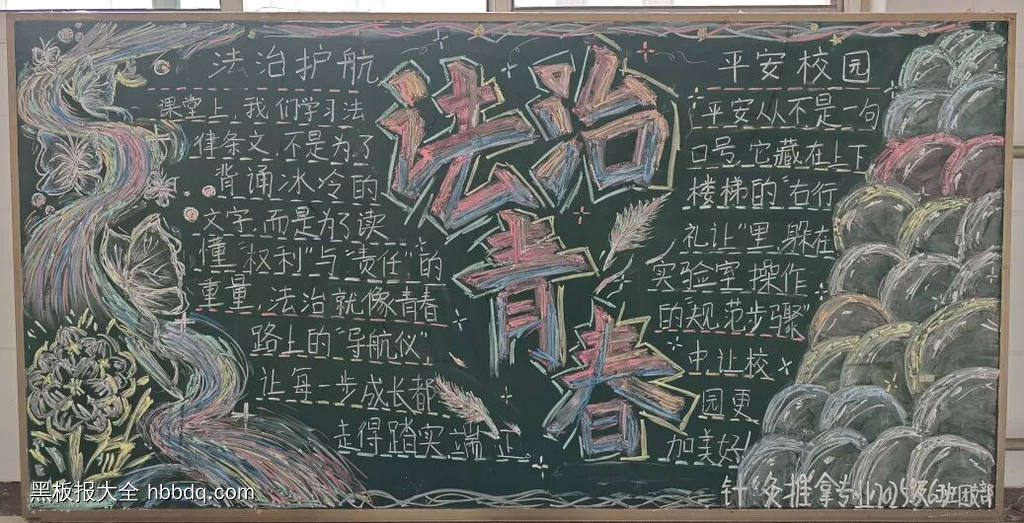 法治护航
课堂上,我们学习法
律条文,不是为了
背诵冰冷的
文字,而是为了读
懂"权利"与"责任"的
重量,法治就像青春
路上的"导航仪",
让每一步成长都
走得踏实端正
法治
青
春
平安校园
平安从不是一句
口号,它藏在上下
楼梯的"右行
礼让"里,躲在
实验室操作
的"规范步骤"
中,让校
园更
加美好!
针灸推拿专业2025级6班团支部
黑板报大全 hbbdq.com